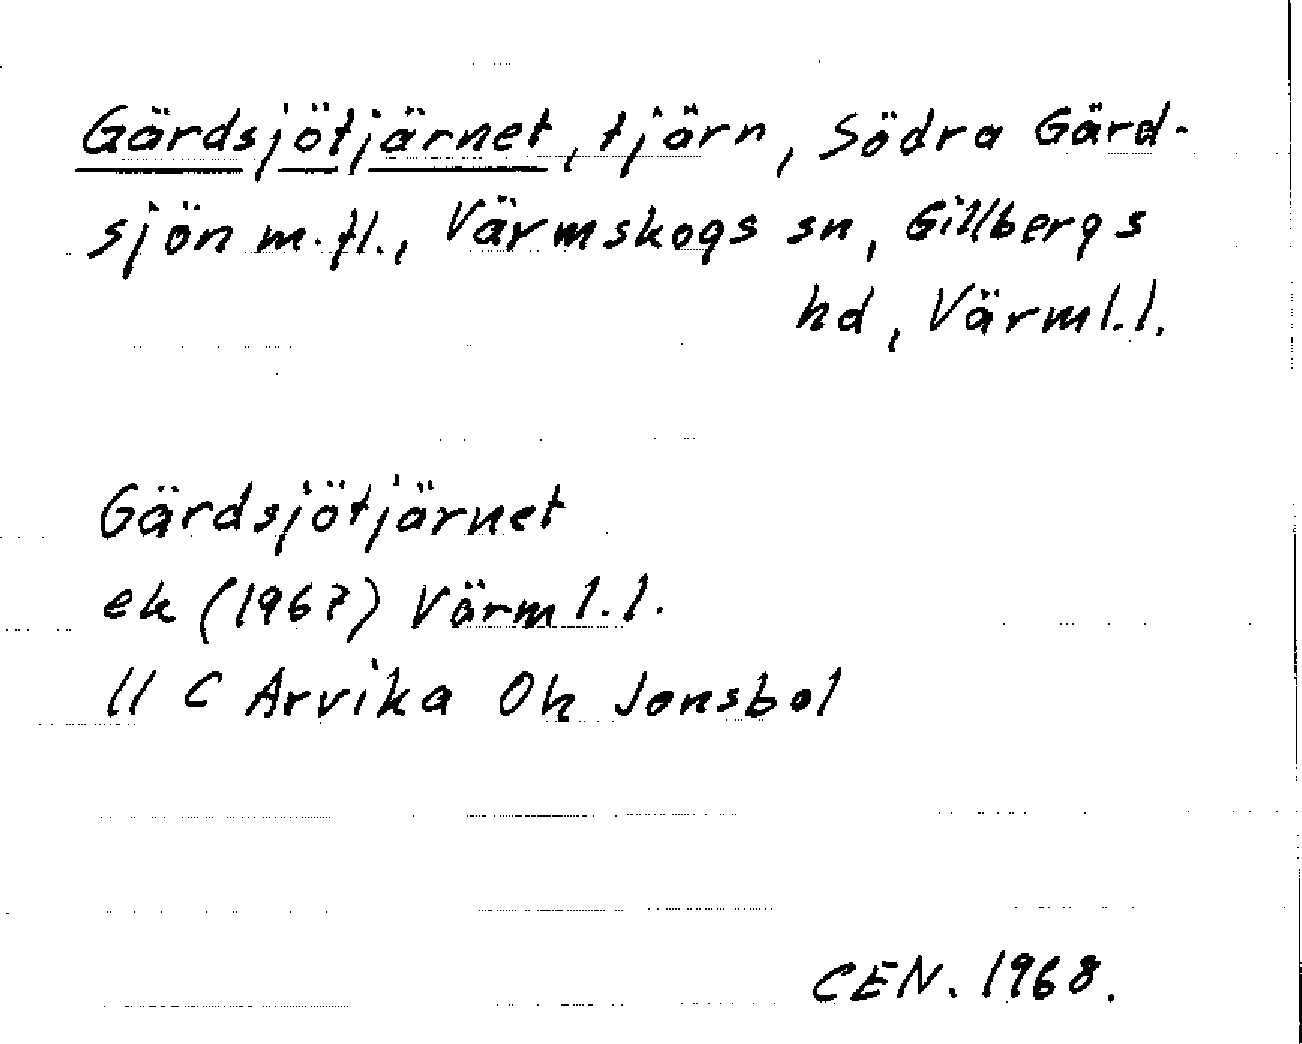 Gärdsjötjärnet, tjärn, Södra Gärd-
sjön m.fl., Värmskogs sn, Gillbergs
hd, Värml.l.
Gärdsjötjärnet
ek (1967) Värml.l.
11 C Arvika Oh Jonsbol
CEN. 1968.